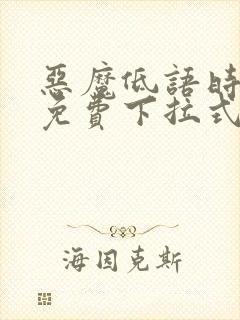 惡魔低語時
免費下拉式
海因克斯